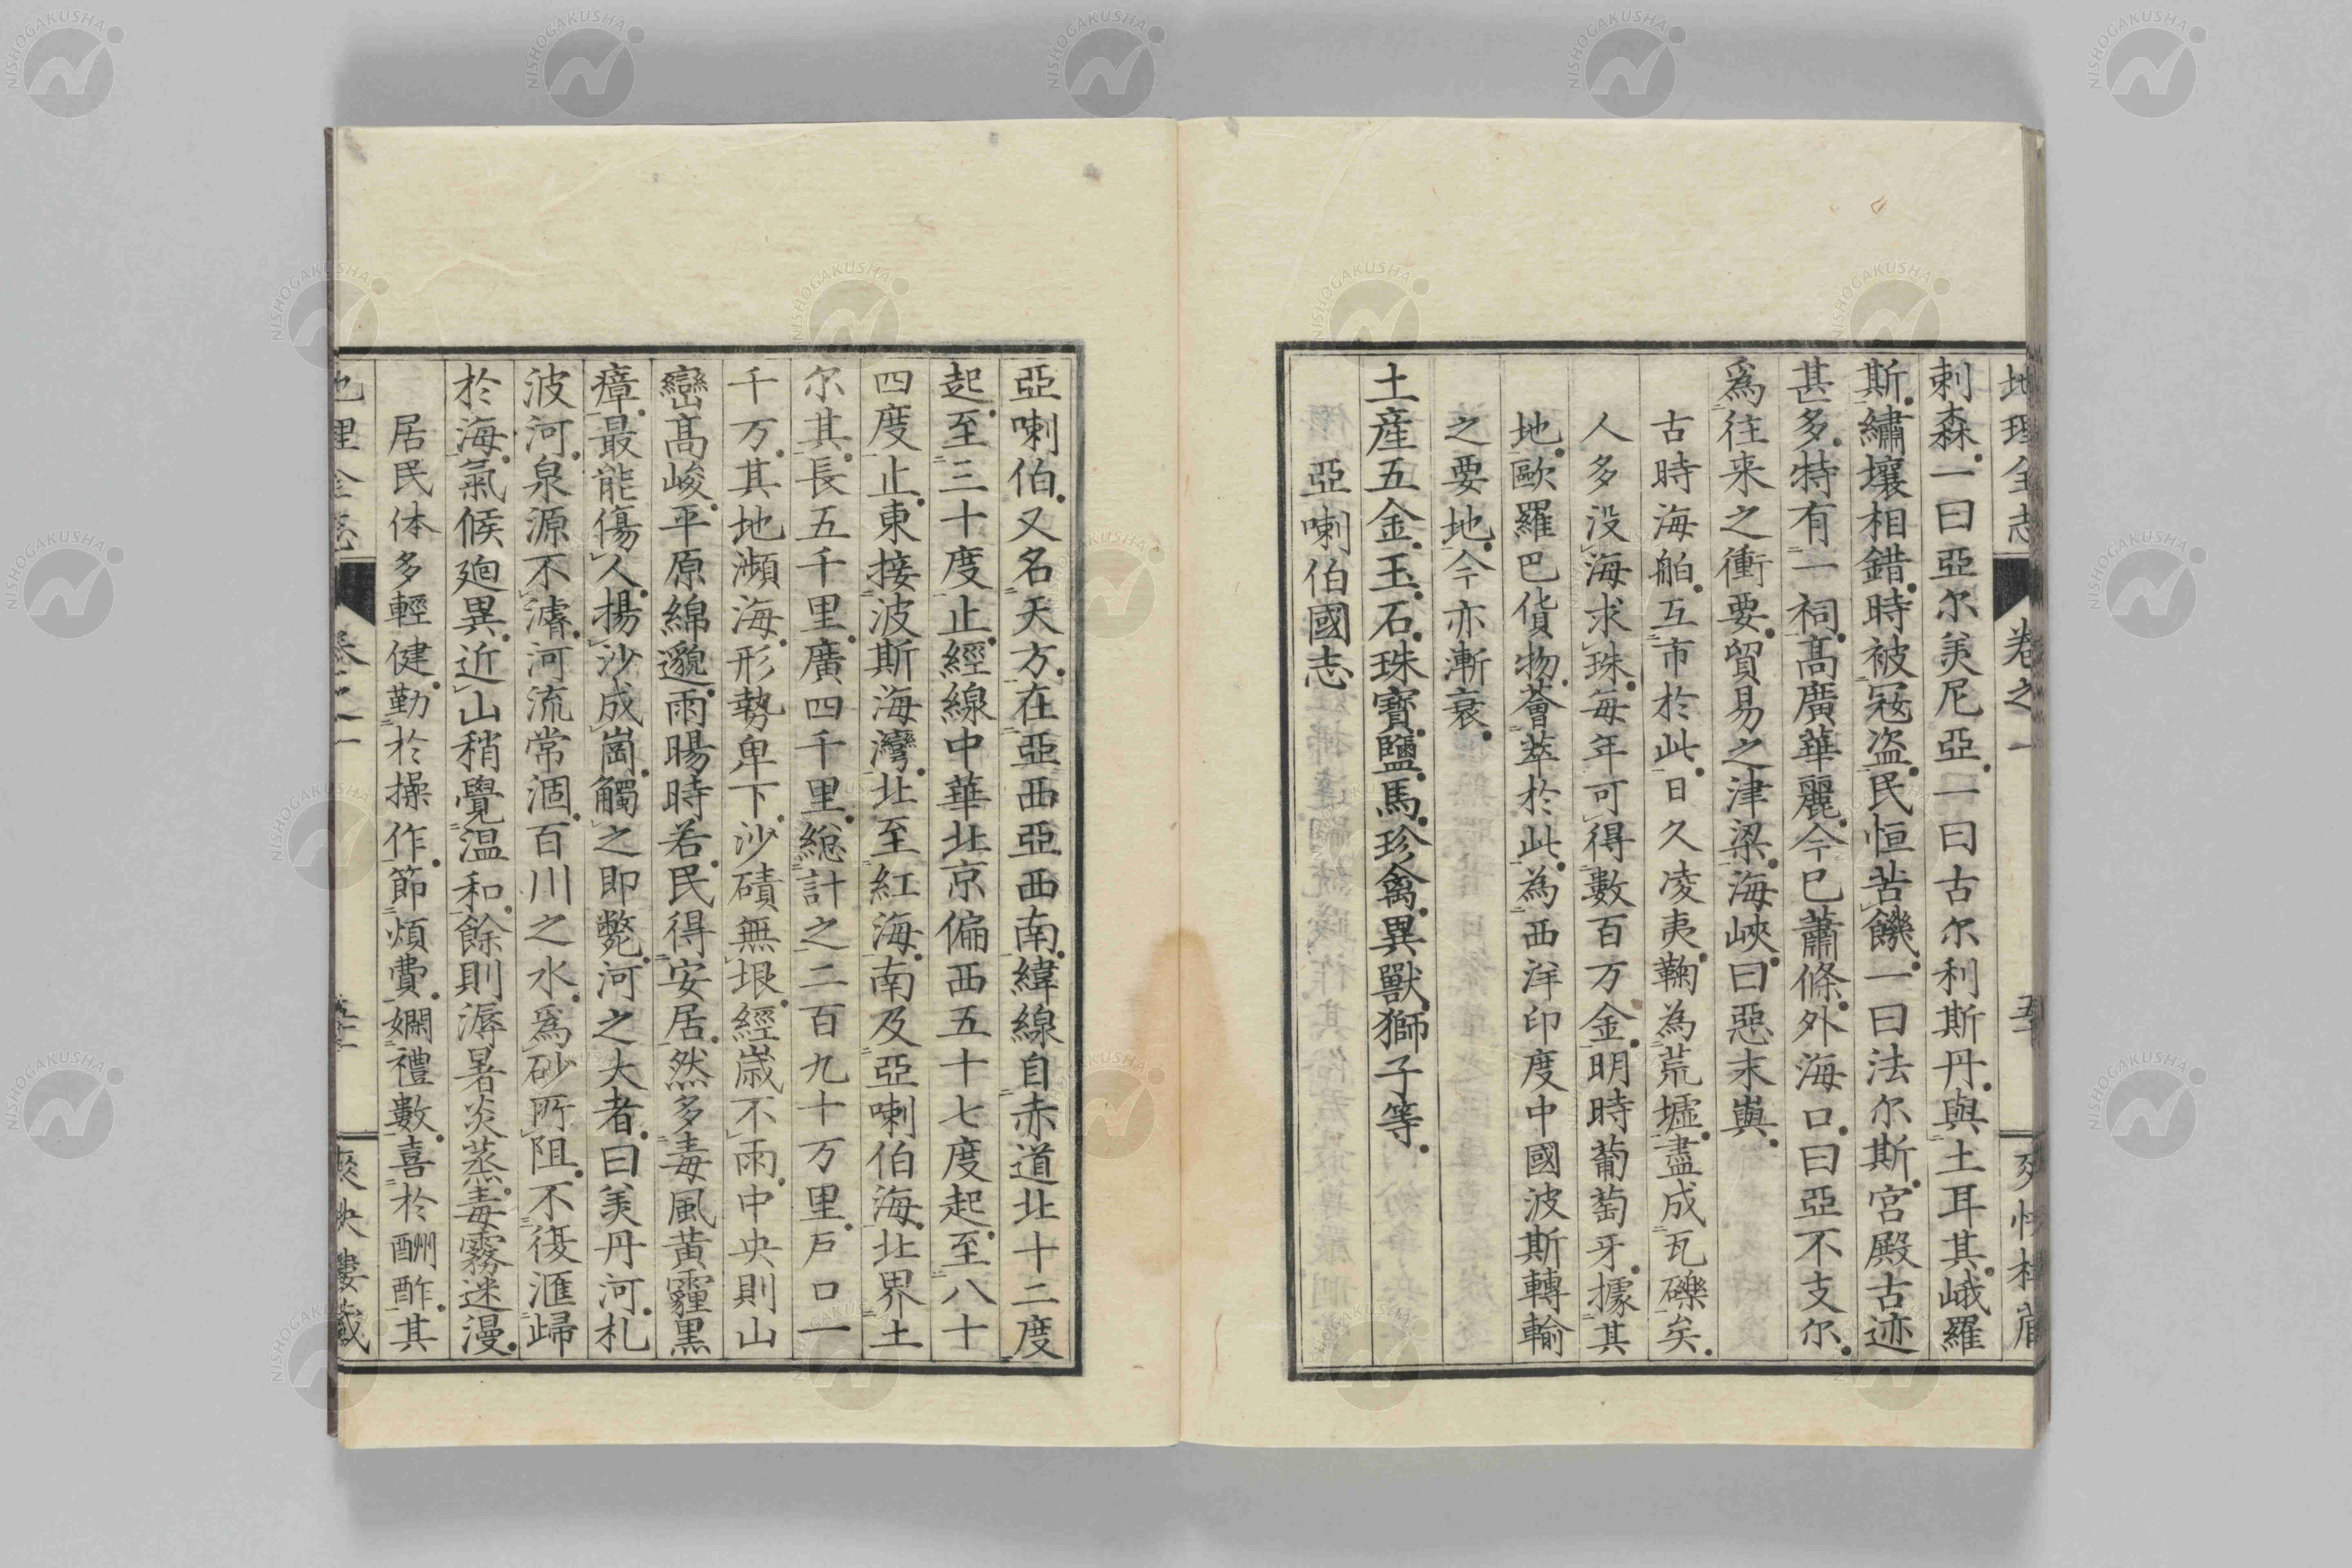 地理全志 卷之一
剌森。一曰亞尔美尼亞。一曰古尔利斯丹。與土耳其。峨羅
斯。繡壤相錯。時被冦盗。民恒苦饑。一曰法尔斯。宮殿古迹
甚多。特有一祠。髙廣華麗。今已蕭條。外海口。曰亞不支尔。
爲往来之衝要。貿易之津梁。海峽。曰惡末㠘。
古時海舶。互市於此。日久凌夷。鞠為荒墟。盡成瓦礫矣。
人多没海求珠。每年可得數百万金。明時葡萄牙。據其
地。歐羅巴貨物。薈萃於此。為西洋印度中國波斯轉輸
之要地。今亦漸衰。
土産五金。玉。石。珠寶。鹽。馬。珍禽。異獸。獅子等。
亞喇伯國志
亞喇伯。又名天方。在亞西亞西南。緯線自赤道北十二度
起。至三十度止。經線中華北京偏西五十七度起。至八十
四度止。東接波斯海灣。北至紅海。南及亞喇伯海。北界土
尔其。長五千里。廣四千里。總計之二百九十万里。戸口一
千万。其地瀕海。形勢卑下。沙磧無垠。經嵗不雨。中央則山
巒髙峻。平原綿邈。雨暘時若。民得安居。然多毒風黃霾黒
瘴。最能傷人。揚沙成崗。觸之即斃。河之大者。曰美丹河。札
波河。泉源不濬。河流常涸。百川之水。爲砂所阻。不復滙歸
於海。氣候逈異。近山稍覺温和。餘則溽暑炎蒸。毒霧迷漫。
居民体多輕健。勤於操作。節煩費。嫻禮數。喜於酬酢。其